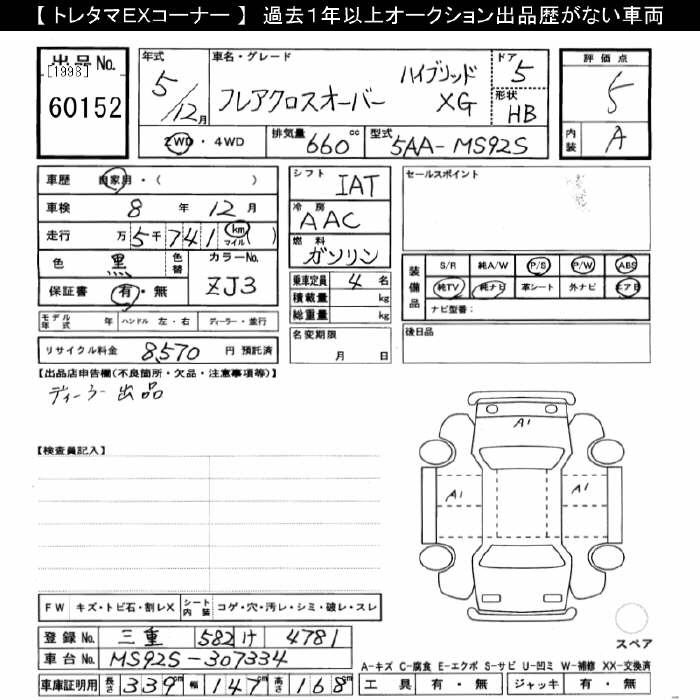 【 トレタマEXコーナー 】 過去1年以上オークション出品歴がない車両
出品No. [1998] 60152
年式 5/12月 車名・グレード フレアクロスオーバー ハイブリッド XG ドア 5 形状 HB
2WD・4WD 排気量 660 cc 型式 5AA-MS92S
評価点 5
内装 A
車歴 自家用・( )
車検 8 年 12 月
走行 万 5 千 7 4 1 km マイル ( )
色 黒 色替 カラーNo. ZJ3
保証書 有・無
モデル年式 年 ハンドル 左・右 ディーラー・並行
リサイクル料金 8,570 円 預託済
シフト IAT
冷房 AAC
燃料 ガソリン
乗車定員 4 名
積載量 kg
総重量 kg
名変期限 月 日
セールスポイント
装備品 S/R 純A/W P/S P/W ABS
純TV 純ナビ 革シート 外ナビ エアB
ナビ型番:
後日品
【出品店申告欄(不良箇所・欠品・注意事項等)】
ディーラー出品
【検査員記入】
A1
A1 A1
スペア
FW キズ・トビ石・割レX シート内装 コゲ・穴・汚レ・シミ・破レ・スレ
登録No. 三重 582 け 4781
車台No. MS92S-307334
車庫証明用 長さ 339 cm 幅 147 cm 高さ 168 cm
A-キズ C-腐食 E-エクボ S-サビ U-凹ミ W-補修 XX-交換済
工具 有・無 ジャッキ 有・無